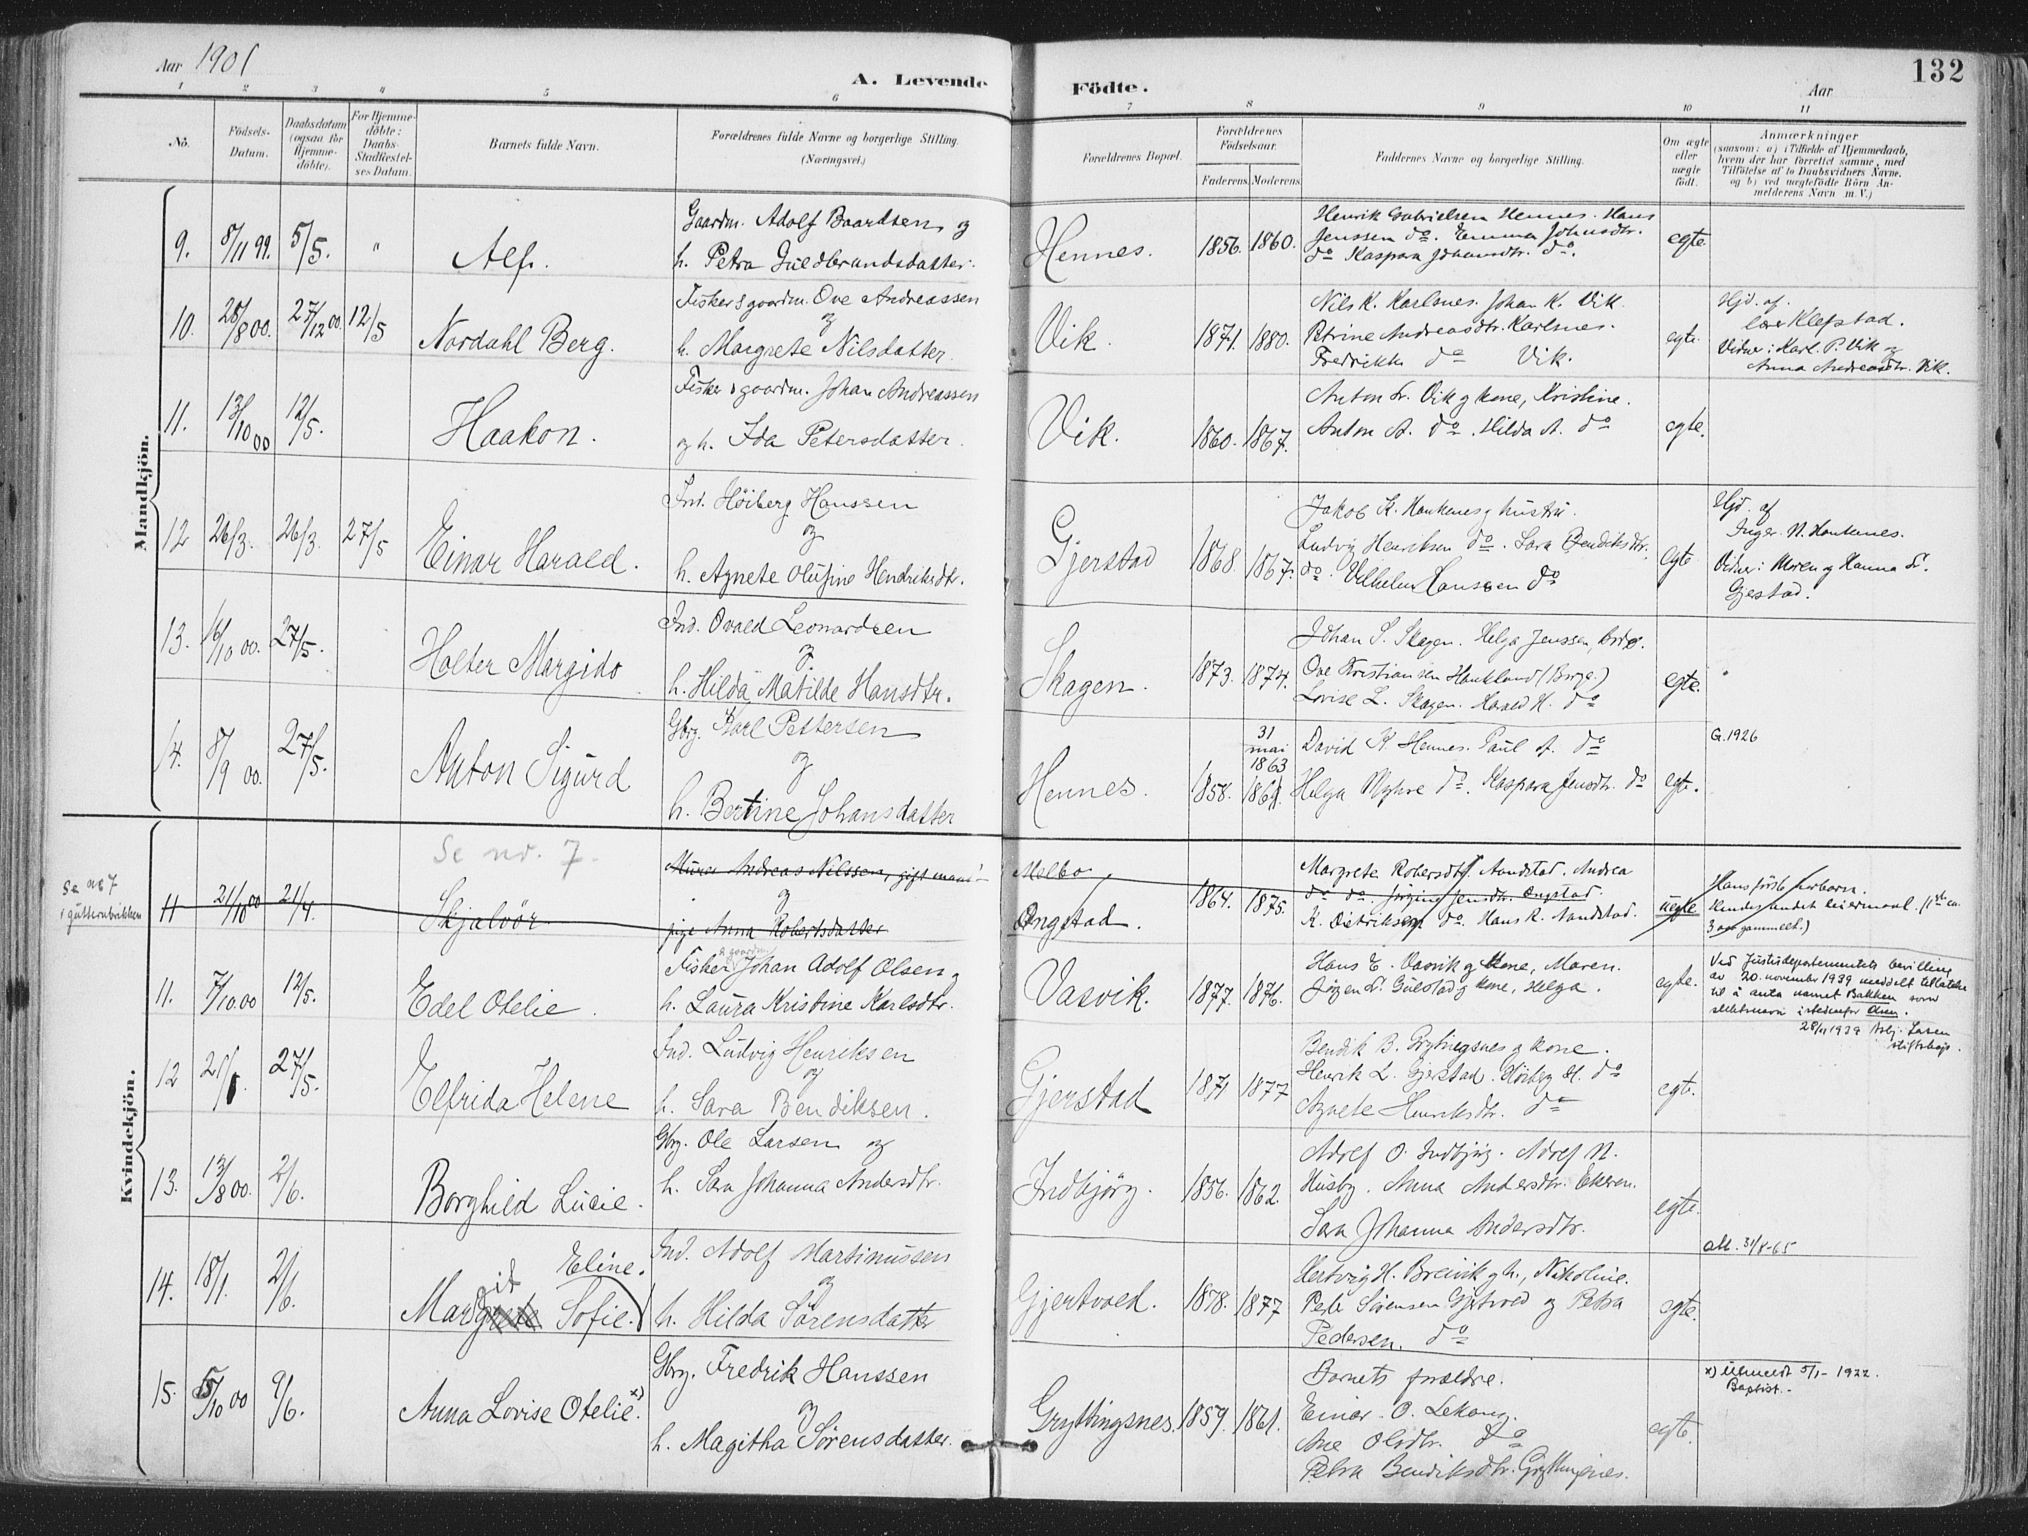 Aar 1901
A. Levende
Födte.
Aar
132
1 2 3 4 5 6 7 8 9 10 11
No.
Födsels-
Datum.
Daabsdatum
(ogsaa for
Hjemme-
döbte).
For Hjemme-
döbte:
Daabs-
Stadfestel-
ses Datum.
Barnets fulde Navn.
Forældrenes fulde Navne og borgerlige Stilling.
(Næringsvei.)
Forældrenes Bopæl.
Forældrenes
Födselsaar.
Faderens. Moderens.
Faddernes Navne og borgerlige Stilling.
Om ægte
eller
uægte
födt.
Anmærkninger
(saasom: a) i Tilfælde af Hjemmedaab,
hvem der har forrettet samme, med
Tilföielse af to Daabsvidners Navne,
og b) ved uægtefödte Börn An-
melderens Navn m. V.)
Mandkjön.
9. 8/11 99. 5/5. " Alf.
Gaardm. Adolf Baardsen og
h. Petra Guldbrandsdatter.
Hennes. 1856. 1860.
Henrik Gabrielsen Hennes. Hans
Jenssen do. Emma Johnsdtr.
do Kaspara Johansdtr. do.
egte.
10. 28/8 00. 27/12 00. 12/5 Nordahl Berg.
Fisker & gaardm. Ove Andreassen
og
h. Margrete Nilsdatter.
Vik. 1871. 1880.
Nils K. Karlsnes. Johan K. Vik.
Petrine Andreasdtr. Karlsnes.
Fredrikke do Vik.
egte.
Hjd. af.
lærer Klefstad.
Vidner: Karl. P. Vik og
Anna Andreasdtr. Vik.
11. 13/10 00 12/5. Haakon.
Fisker & gaardm. Johan Andreassen
og h. Ida Petersdatter.
Vik. 1860. 1867.
Anton Vik og kone, Kristine.
Anton A. do. Hilda A. do
egte.
12 26/3. 26/3. 27/5 Einar Harald.
Ind. Höiberg Hanssen
og
h. Agnete Olufine Hendriksdtr.
Gjerstad 1868. 1867.
Jakob K. Haukenes og hustru.
Ludvig Henriksen do. Sara Bendiksdtr.
do. Vilhelm Hanssen do
egte
Hjd. af
Inger N. Haukenes.
Vidner: Maren og Hanna
Gjestad.
13. 16/10 00. 27/5. Halter Margido
Ind. Ovald Leonardsen
og
h. Hilda Matilde Hansdtr.
Skagen. 1873. 1874.
Johan S. Skagen. Helga Jenssen,
Ove Kristiansen Haukland (Borge.)
Lovise L. Skagen. Harald H. do
egte.
14. 8/9 00. 27/5. Anton Sigurd
Gbrg. Karl Pettersen
og
h. Bertine Johansdatter
Hennes. 1858. 1861.
31
mai
1863
David K. Hennes. Paul A. do
Helga Myhre do. Kaspara Jensdtr. do
egte.
G. 1926
Kvindekjön.
Se no. 7.
Se no 7
i gutterubrikken
11 21/10 00 21/4. Skjalvör
Murer Andreas Nilssen, gift mand
og
pige Anna Robertsdatter
Melbo
Ongstad. 1864. 1875.
Margrete Robersdtr Sandstad. Andrea
do do. Jörgine Jensdtr. Ongstad.
K. Didriksen do. Hans R. Sandstad.
uegte
Hans förste horbarn.
Hendes andet leiermaal. (1ste ca.
3 aar gammelt.)
11. 7/10 00 12/5. Edel Otelie.
Fisker & gaardm. Johan Adolf Olsen og
h. Laura Kristine Karlsdtr.
Vasvik. 1877. 1876.
Hans E. Vasvik og kone, Maren.
Jörgen Gulstad og kone, Helga.
egte.
Ved Justisdepartementets bevilling
av 20. november 1939 meddelt tillatelse
til å anta navnet Bakken som
slektsnavn istedenfor Olsen.
28/11 1939 Asbj. Larsen
stiftskap.
12 27/5. Elfrida Helene
Ind. Ludvig Henriksen
og
h. Sara Bendiksen.
Gjerstad 1871 1877
Bendik B. Grytingsnes og kone.
Henrik L. Gjerstad. Höiberg H. do
Agnete Henriksdtr. do
egte.
13. 13/8 00. 2/6. Borghild Lucie.
Gbrg. Ole Larsen og
h. Sara Johanna Andersdtr.
Indbjörg. 1856. 1862.
Adolf O. Indbjörg. Adolf N.
Husby. Anna Andersdtr. Ekren.
Sara Johanna Andersdtr.
egte.
14. 18/1. 2/6. Margit Eline Sofie.
Ind. Adolf Martinussen
og
h. Hilda Sörensdatter
Gjertvold. 1878. 1877
Hertvig H. Breivik og h., Nikoline.
Peder Sörensen Gjertvold og Petra
Pedersen. do
egte.
att. 31/8-65
15. 15/10 00 9/6. Anna Lovise Otelie. x)
Gbrg. Fredrik Hanssen
og
h. Magitha Sörensdatter.
Gryttingsnes. 1859. 1861.
Barnets forældre.
Einar. O. Lekang.
Ane Olsdtr. do
Petra Bendiksdtr. Gryttingsnes.
egte.
x) Utmeldt 5/1- 1922.
Baptist.